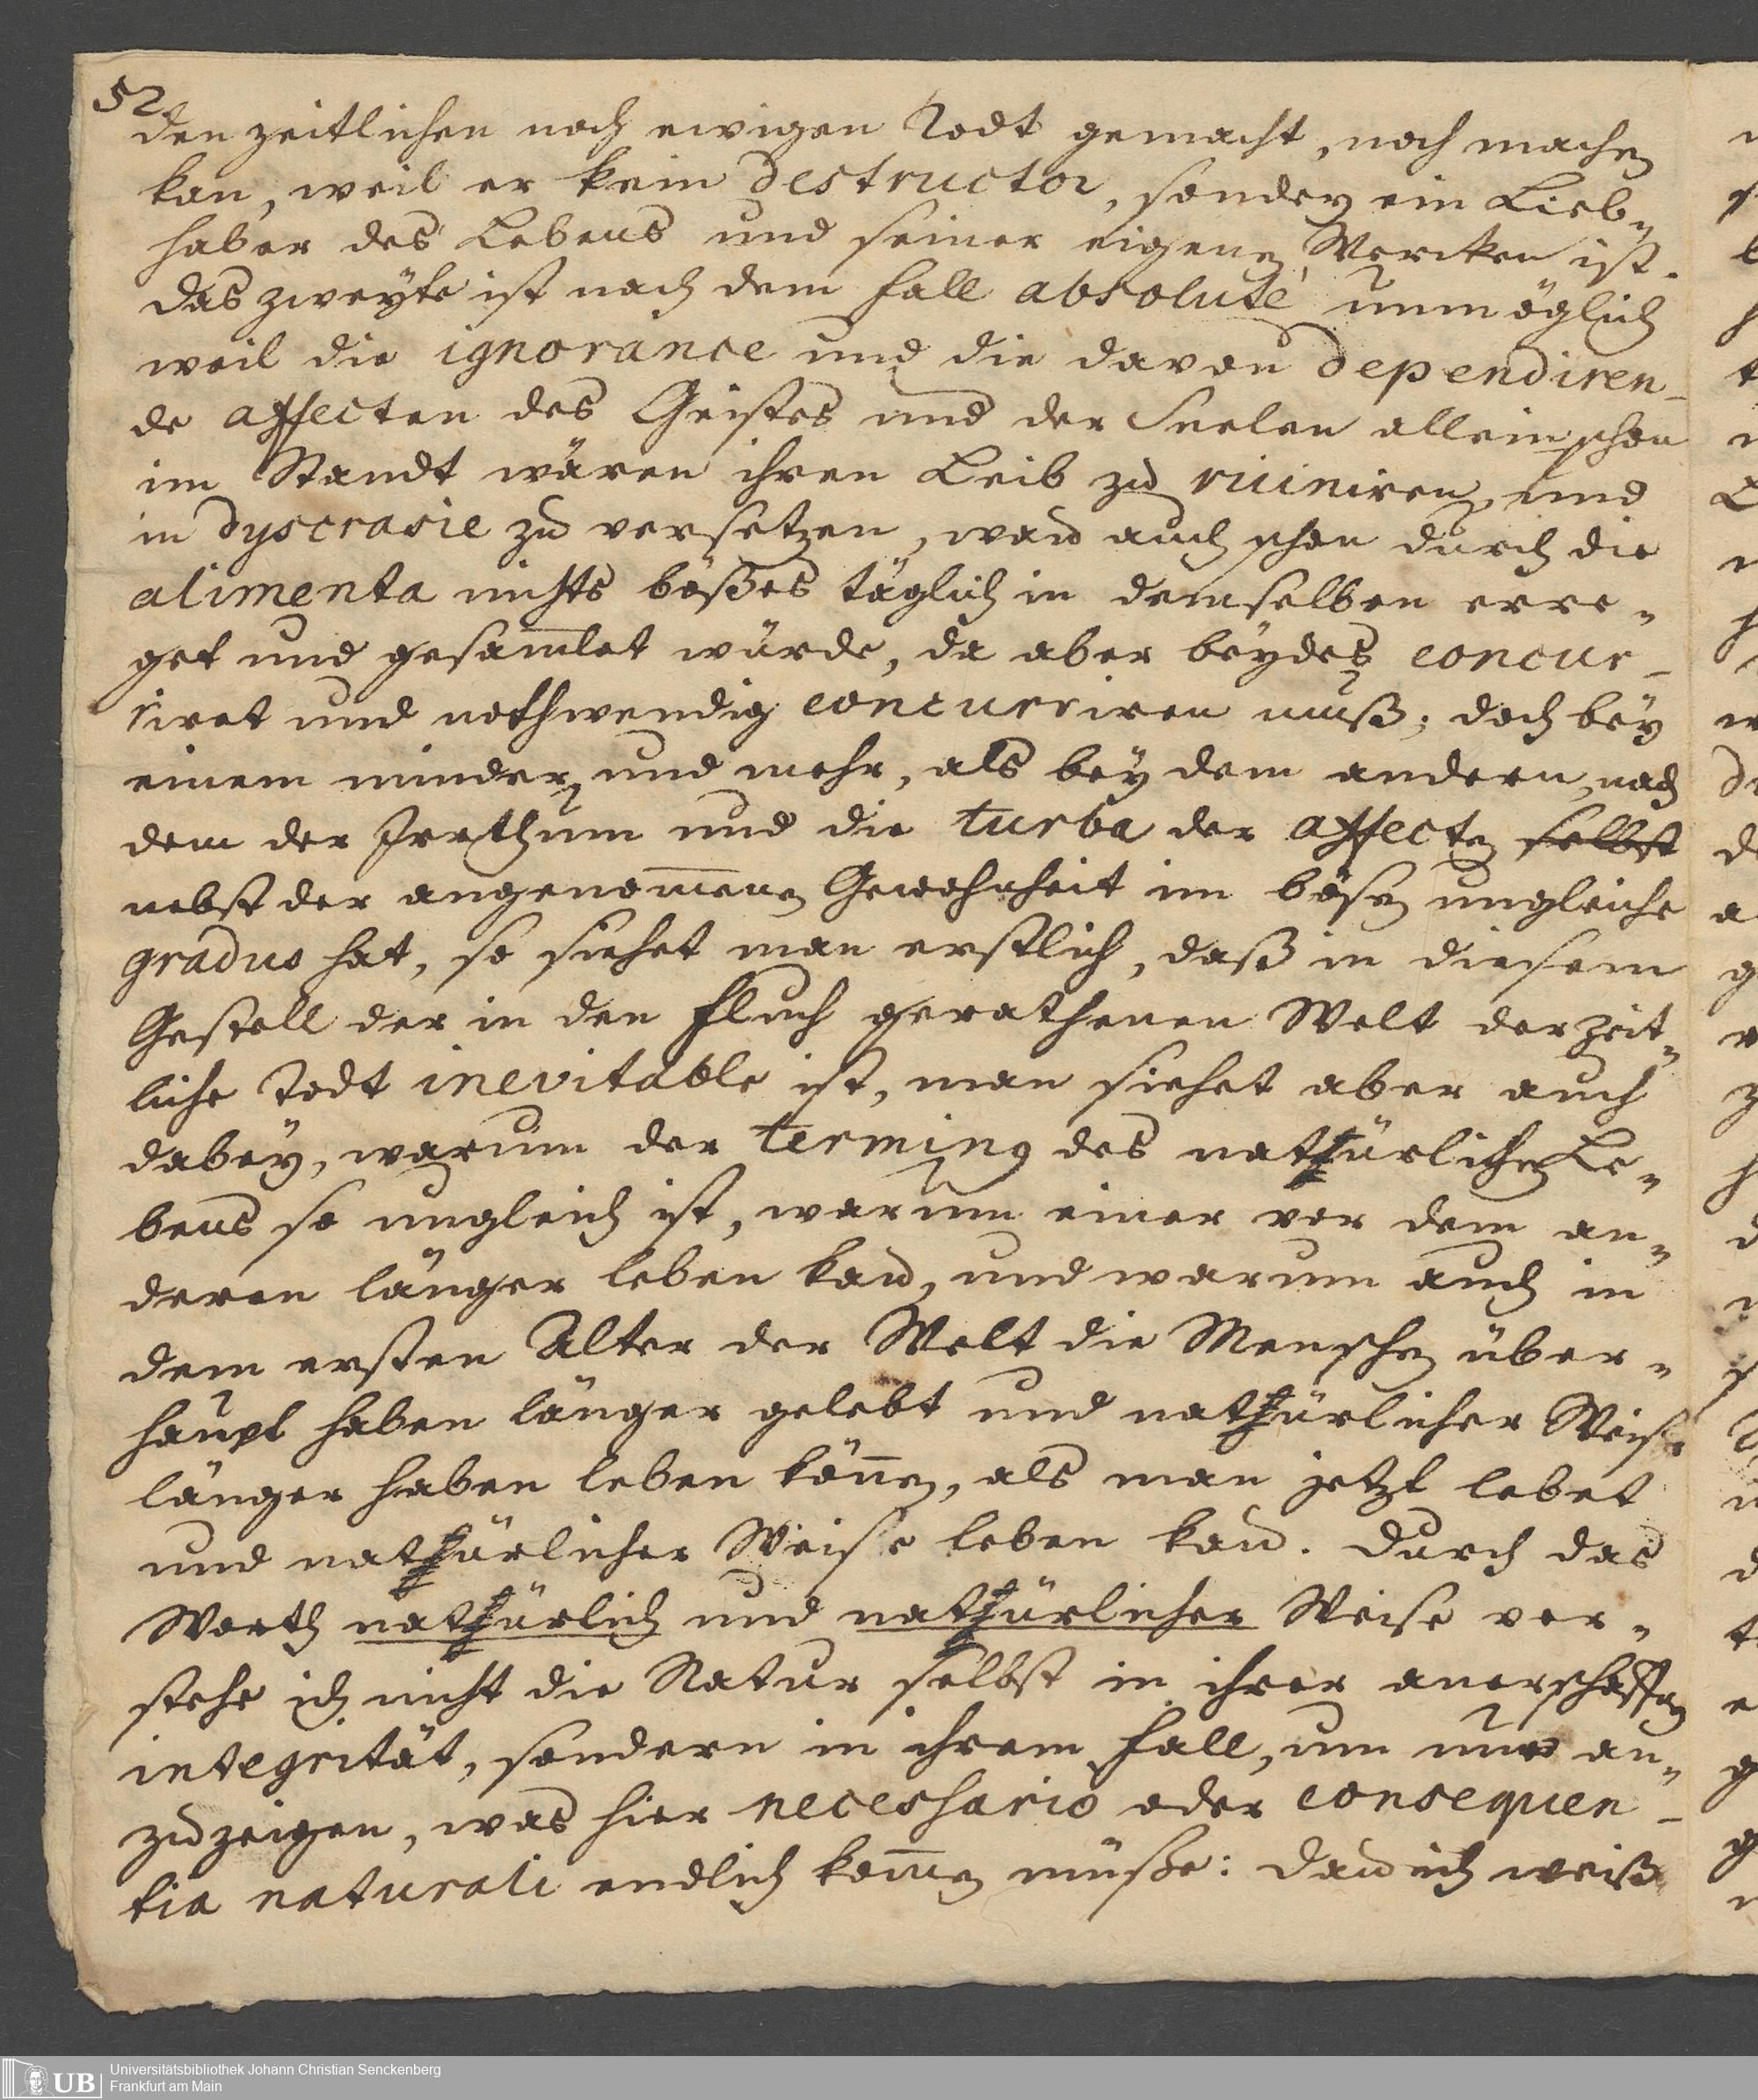 52
den zeitlichen noch ewigen Todt gemacht, noch machen
kan, weil er kein destructor, sondern ein Lieb-
haber des Lebens und seiner eigenen Wercken ist.
das zweyte ist nach dem fall absolute unmöglich
weil die ignorance und die davon dependiren-
de affecten des Geistes und der Seelen allein schon
im Standt wären ihren Leib zu ruiniren, und
in dyscrasie zu versetzen, wan auch schon durch die
alimenta nichts böses täglich in demselben erre-
get und gesamlet würde, da aber beydes concur-
riret und nothwendig concurriren muß; doch bey
einem minder, und mehr, als bey dem andern, nach
dem der Irrthum und die turba der affecten selbst
nebst der angenommenen Gewohnheit im bösen ungleiche
gradus hat, so siehet man erstlich, daß in diesem
Gestell der in den fluch gerathenen Welt der zeit-
liche Todt inevitable ist, man siehet aber auch
dabey, warum der terminus des natürlichen Le-
bens so ungleich ist, warum einer vor dem an-
deren länger leben kan, und warum auch in
dem ersten Alter der Welt die Menschen über-
haupt haben länger gelebt und natürlicher Weise
länger haben leben können, als man jetzt lebet
und natürlicher Weise leben kan. Durch das
Worth natürlich und natürlicher Weise ver-
stehe ich nicht die Natur selbst in ihrer anerschaffnen
integrität, sondern in ihrem fall, um nur an-
zuzeigen, was hier necessario oder consequen-
tia naturali endlich kommen müße: dan ich weiß
Universitätsbibliothek Johann Christian Senckenberg
Frankfurt am Main
UB